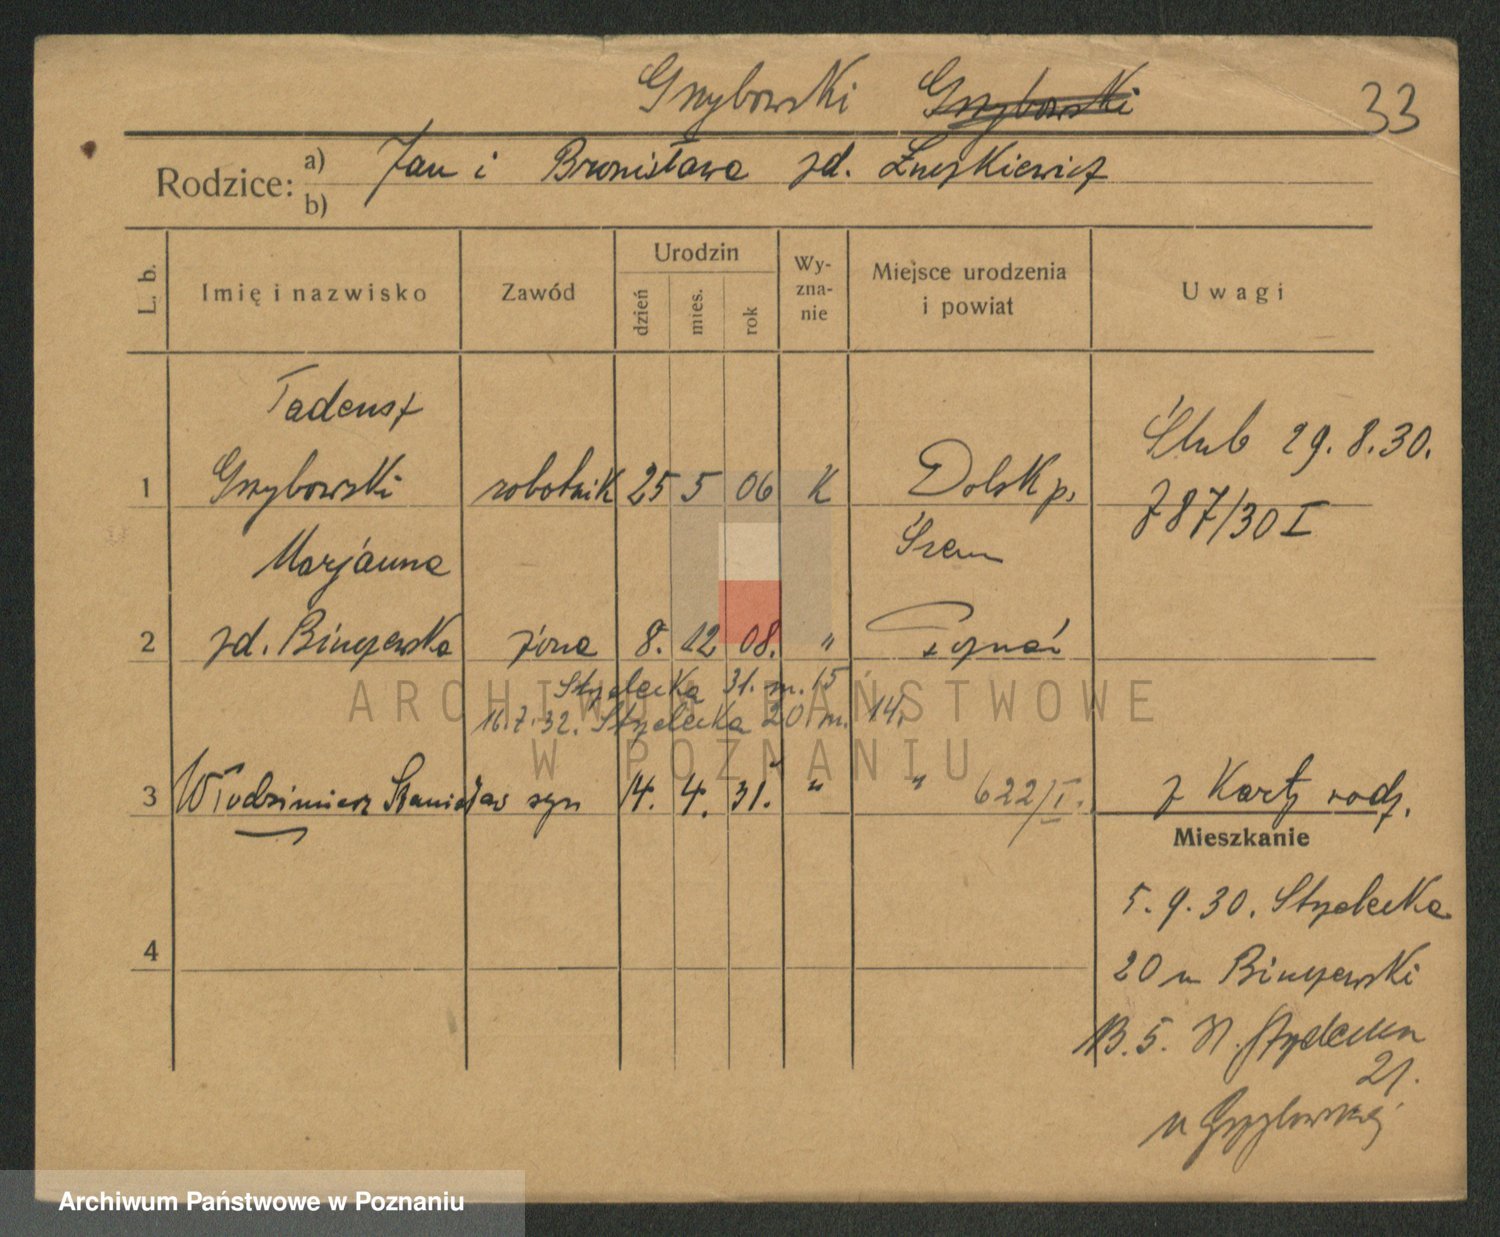 Grzybowski Grzybowski 33
Rodzice: a) Jan i Bronisława zd. Łuczkiewicz
b)
L. b. Imię i nazwisko Zawód Urodzin dzień mies. rok Wy-zna-nie Miejsce urodzenia i powiat Uwagi
Tadeusz
1 Grzybowski robotnik 25 5 06 K Dolsk p. Ślub 29.8.30.
Śrem 787/30 I
Marjanna
2 zd. Binczewska żona 8. 12 08. " Poznań
Strzelecka 31. m. 15
16.7.32. Strzelecka 20 m. 14.
3 Włodzimierz Stanisław syn 14. 4. 31. " " 622/I. z Karty rodz.
Mieszkanie
5.9.30. Strzelecka
4 20 u Binczewski
13.5. Strzelecka
21.
u
ARCHIWUM PAŃSTWOWE
W POZNANIU
Archiwum Państwowe w Poznaniu